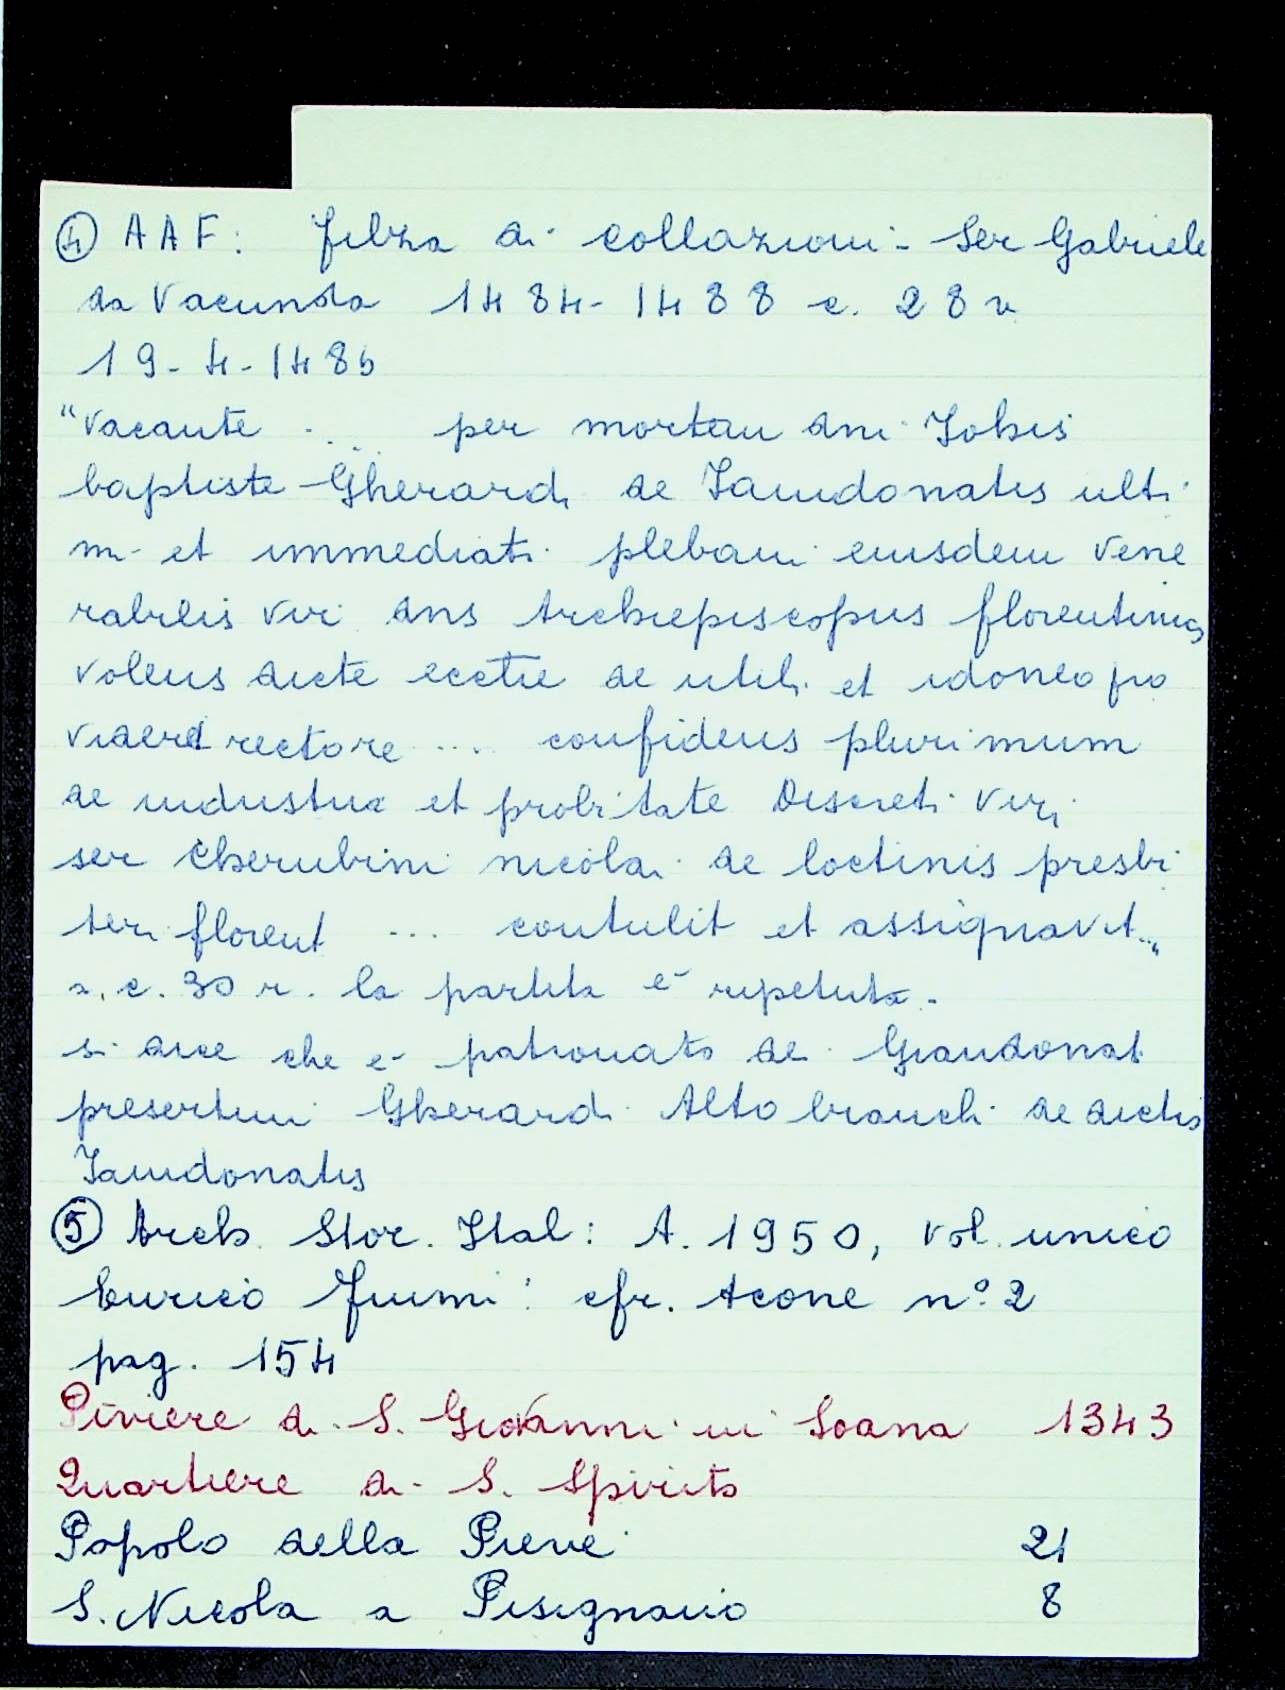 ④ A A F: filza di collazioni - Ser Gabriele
da Vacunda 1484-1488 c. 28 v
19-4-1485
"vacante .... per mortem dni Johis
baptiste Gherardi de Jamdonatis ulti
mi et immediati plebani eiusdem vene
rabilis viri dns Archiepiscopus florentinus
volens dicte eccție de utili et idoneo pro
videre rectore .... confidens plurimum
de industria et probitate Discreti viri
ser Cherubini nicolai de loctinis presbi
teri florent ... contulit et assignavit..."
a. c. 30 r. la partita è ripetuta -
si dice che è patronato dei Giandonati
presertim Gherardi Altobranchi de dictis
Jamdonatis
⑤ Arch. Stor. Ital: A. 1950, vol. unico
Enrico Fiumi: cfr. Acone n° 2
pag. 154
Piviere di S. Giovanni in Soana 1343
Quartiere di S. Spirito
Popolo della Pieve 21
S. Nicola a Pisignano 8